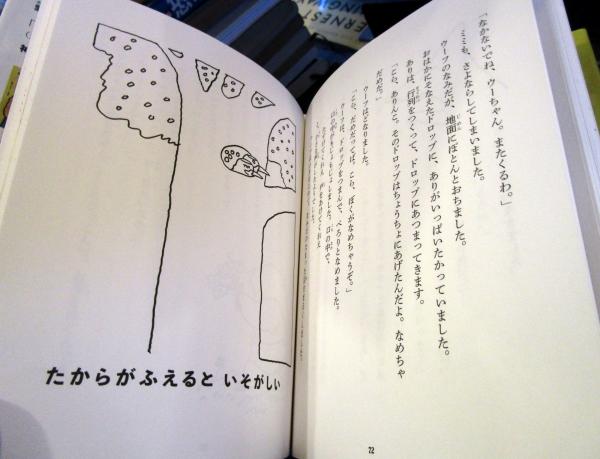 「なかないでね、ウーちゃん。またくるわ。」
ミミも、さよならしてしまいました。
ウーフのなみだが、地面にぽとんとおちました。
おはかにそなえたドロップに、ありがいっぱいたかっていました。
ありは、行列をつくって、ドロップにあつまってきます。
「こら、ありんこ。そのドロップはちょうちょにあげたんだよ。なめちゃ
だめだ。」
ウーフはどなりました。
「こら、だめだってば。こら、ぼくがなめちゃうぞ。」
ウーフは、ドロップをつまんで、ぺろりとなめました。
72
たからがふえると いそがしい